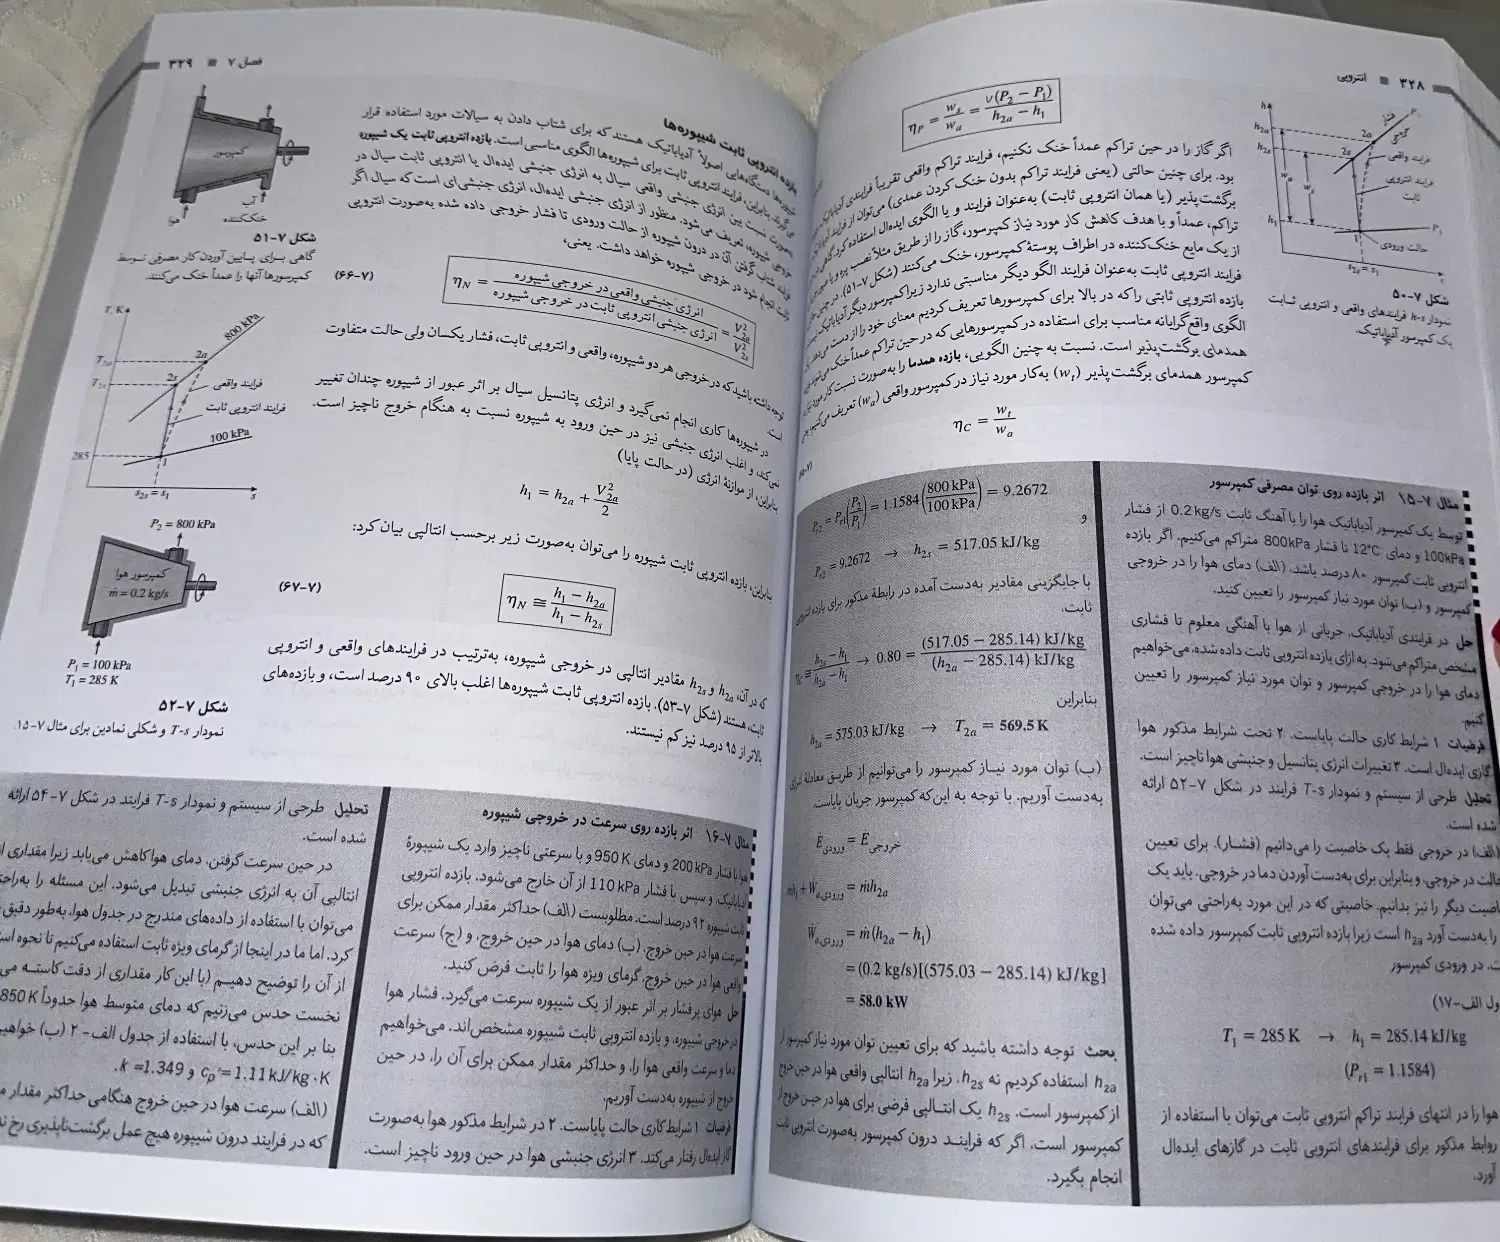 ۳۲۸ ■ انتروپی
h
h2a
h2s
h1
wa
ws
2a
2s
1
P1
فرایند واقعی
فرایند انتروپی
ثابت
حالت ورودی
s2s = s1
شکل ۷-۵۰
نمودار h-s فرایندهای واقعی و انتروپی ثابت
یک کمپرسور آدیاباتیک.
ηP = ws/wa = v(P2 − P1)/(h2a − h1)
اگر گاز را در حین تراکم عمداً خنک نکنیم، فرایند تراکم واقعی تقریباً فرایندی آدیاباتیک
بود. برای چنین حالتی (یعنی فرایند تراکم بدون خنک کردن عمدی) می‌توان از فرایند آدیاباتیک
برگشت‌پذیر (یا همان انتروپی ثابت) به‌عنوان فرایند و یا الگوی ایده‌ال استفاده کرد.
تراکم، عمداً و با هدف کاهش کار مورد نیاز کمپرسور، گاز را از طریق مثلاً نصب پره و یا
از یک مایع خنک‌کننده در اطراف پوستهٔ کمپرسور، خنک می‌کنند (شکل ۷-۵۱). در چنین
فرایند انتروپی ثابت به‌عنوان فرایند الگو دیگر مناسبتی ندارد زیرا کمپرسور دیگر آدیاباتیک
بازده انتروپی ثابتی را که در بالا برای کمپرسورها تعریف کردیم معنای خود را از دست می‌دهد.
الگوی واقع‌گرایانه مناسب برای استفاده در کمپرسورهایی که در حین تراکم عمداً خنک می‌شوند
همدمای برگشت‌پذیر است. نسبت به چنین الگویی، بازده همدما را به‌صورت نسبت کار مورد نیاز
کمپرسور همدمای برگشت‌پذیر (wt) به‌کار مورد نیاز در کمپرسور واقعی (wa) تعریف می‌کنیم
ηC = wt/wa
مثال ۷-۱۵ اثر بازده روی توان مصرفی کمپرسور
توسط یک کمپرسور آدیاباتیک هوا را با آهنگ ثابت 0.2 kg/s از فشار
100kPa و دمای 12°C تا فشار 800kPa متراکم می‌کنیم. اگر بازده
انتروپی ثابت کمپرسور ۸۰ درصد باشد، (الف) دمای هوا را در خروجی
کمپرسور و (ب) توان مورد نیاز کمپرسور را تعیین کنید.
حل در فرایندی آدیاباتیک، جریانی از هوا با آهنگی معلوم تا فشاری
مشخص متراکم می‌شود. به ازای بازده انتروپی ثابت داده شده، می‌خواهیم
دمای هوا را در خروجی کمپرسور و توان مورد نیاز کمپرسور را تعیین
کنیم.
فرضیات ۱ شرایط کاری حالت پایاست. ۲ تحت شرایط مذکور هوا
گازی ایده‌ال است. ۳ تغییرات انرژی پتانسیل و جنبشی هوا ناچیز است.
تحلیل طرحی از سیستم و نمودار T-s فرایند در شکل ۷-۵۲ ارائه
شده است.
(الف) در خروجی فقط یک خاصیت را می‌دانیم (فشار). برای تعیین
حالت در خروجی، و بنابراین برای به‌دست آوردن دما در خروجی، باید یک
خاصیت دیگر را نیز بدانیم. خاصیتی که در این مورد به‌راحتی می‌توان
را به‌دست آورد h2a است زیرا بازده انتروپی ثابت کمپرسور داده شده
ت. در ورودی کمپرسور
ول الف-۱۷)
T1 = 285 K → h1 = 285.14 kJ/kg
(Pr1 = 1.1584)
هوا را در انتهای فرایند تراکم انتروپی ثابت می‌توان با استفاده از
روابط مذکور برای فرایندهای انتروپی ثابت در گازهای ایده‌ال
آورد.
Pr2 = Pr1(P2/P1) = 1.1584(800 kPa/100 kPa) = 9.2672
و
Pr2 = 9.2672 → h2s = 517.05 kJ/kg
با جایگزینی مقادیر به‌دست آمده در رابطهٔ مذکور برای بازده انتروپی
ثابت،
ηC ≅ (h2s − h1)/(h2a − h1) → 0.80 = (517.05 − 285.14) kJ/kg / (h2a − 285.14) kJ/kg
بنابراین
h2a = 575.03 kJ/kg → T2a = 569.5 K
(ب) توان مورد نیـاز کمپرسور را می‌توانیم از طریق معادلهٔ انرژی
به‌دست آوریم. با توجه به این‌که کمپرسور جریان پایاست،
Ėورودی = Ėخروجی
ṁh1 + Ẇa,ورودی = ṁh2a
Ẇa,ورودی = ṁ(h2a − h1)
= (0.2 kg/s)[(575.03 − 285.14) kJ/kg]
= 58.0 kW
بحث توجه داشته باشید که برای تعیین توان مورد نیاز کمپرسور از
h2a استفاده کردیم نه h2s، زیرا h2a انتالپی واقعی هوا در حین خروج
از کمپرسور است. h2s یک انتـالپی فرضی برای هوا در حیـن خروج از
کمپرسور است، اگر که فراینـد درون کمپرسور به‌صورت انتروپی ثابت
انجام بگیرد.
فصل ۷ ■ ۳۲۹
کمپرسور
هوا
آب
خنک‌کننده
شکل ۷-۵۱
گاهی بـرای پـایین آوردن کار مصرفی توسط
کمپرسورها آنها را عمداً خنک می‌کنند.
T, K
800 kPa
T2a
T2s
2a
2s
فرایند واقعی
فرایند انتروپی ثابت
100 kPa
285
1
s2s = s1
s
P2 = 800 kPa
کمپرسور هوا
ṁ = 0.2 kg/s
P1 = 100 kPa
T1 = 285 K
شکل ۷-۵۲
نمودار T-s و شکلی نمادین برای مثال ۷-۱۵.
بازده انتروپی ثابت شیپوره‌ها
شیپوره‌ها دستگاه‌هایی اصولاً آدیاباتیک هستند که برای شتاب دادن به سیالات مورد استفاده قرار
می‌گیرند. بنابراین، فرایند انتروپی ثابت برای شیپوره‌ها الگوی مناسبی است. بازده انتروپی ثابت یک شیپوره
به‌صورت نسبت بین انرژی جنبشی واقعی سیال به انرژی جنبشی ایده‌ال یا انتروپی ثابت سیال در
خروجی شیپوره، تعریف می‌شود. منظور از انرژی جنبشی ایده‌ال، انرژی جنبشی‌ای است که سیال اگر
فرایند شتاب گرفتن آن در درون شیپوره از حالت ورودی تا فشار خروجی داده شده به‌صورت انتروپی
ثابت انجام شود در خروجی شیپوره خواهد داشت. یعنی،
ηN = انرژی جنبشی واقعی در خروجی شیپوره / انرژی جنبشی انتروپی ثابت در خروجی شیپوره = V²2a/V²2s (۷-۶۶)
توجه داشته باشید که در خروجی هر دو شیپوره، واقعی و انتروپی ثابت، فشار یکسان ولی حالت متفاوت
است.
در شیپوره‌ها کاری انجام نمی‌گیرد و انرژی پتانسیل سیال بر اثر عبور از شیپوره چندان تغییر
نمی‌کند، و اغلب انرژی جنبشی نیز در حین ورود به شیپوره نسبت به هنگام خروج ناچیز است.
بنابراین، از موازنهٔ انرژی (در حالت پایا)
h1 = h2a + V²2a/2
بنابراین، بازده انتروپی ثابت شیپوره را می‌توان به‌صورت زیر برحسب انتالپی بیان کرد:
ηN ≅ (h1 − h2a)/(h1 − h2s) (۷-۶۷)
که در آن، h2a و h2s مقادیر انتالپی در خروجی شیپوره، به‌ترتیب در فرایندهای واقعی و انتروپی
ثابت، هستند (شکل ۷-۵۳). بازده انتروپی ثابت شیپوره‌ها اغلب بالای ۹۰ درصد است، و بازده‌های
بالاتر از ۹۵ درصد نیز کم نیستند.
مثال ۷-۱۶ اثر بازده روی سرعت در خروجی شیپوره
هوا با فشار 200 kPa و دمای 950 K و با سرعتی ناچیز وارد یک شیپورهٔ
آدیاباتیک، و سپس با فشار 110 kPa از آن خارج می‌شود. بازده انتروپی
ثابت شیپوره ۹۲ درصد است. مطلوبست (الف) حداکثر مقدار ممکن برای
سرعت هوا در حین خروج، (ب) دمای هوا در حین خروج، و (ج) سرعت
واقعی هوا در حین خروج. گرمای ویژه هوا را ثابت فرض کنید.
حل هوای پرفشار بر اثر عبور از یک شیپوره سرعت می‌گیرد. فشار هوا
در خروجی شیپوره، و بازده انتروپی ثابت شیپوره مشخص‌اند. می‌خواهیم
دما و سرعت واقعی هوا را، و حداکثر مقدار ممکن برای آن را، در حین
خروج از شیپوره به‌دست آوریم.
فرضیات ۱ شرایط کاری حالت پایاست. ۲ در شرایط مذکور هوا به‌صورت
گاز ایده‌ال رفتار می‌کند. ۳ انرژی جنبشی هوا در حین ورود ناچیز است.
تحلیل طرحی از سیستم و نمودار T-s فرایند در شکل ۷-۵۴ ارائه
شده است.
در حین سرعت گرفتن، دمای هوا کاهش می‌یابد زیرا مقداری از
انتالپی آن به انرژی جنبشی تبدیل می‌شود. این مسئله را به‌راحتی
می‌توان با استفاده از داده‌های مندرج در جدول هوا، به‌طور دقیق
کرد. اما ما در اینجا از گرمای ویژه ثابت استفاده می‌کنیم تا نحوه
از آن را توضیح دهیـم (با این کار مقداری از دقت کاستـه می
نخست حدس می‌زنیم که دمای متوسط هوا حدوداً 850 K
بنا بر این حدس، با استفاده از جدول الف-۲ (ب) خواهیم
cp = 1.11 kJ/kg · K و k = 1.349.
(الف) سرعت هوا در حین خروج هنگامی حداکثر مقدار
که در فرایند درون شیپوره هیچ عمل برگشت‌ناپذیری رخ